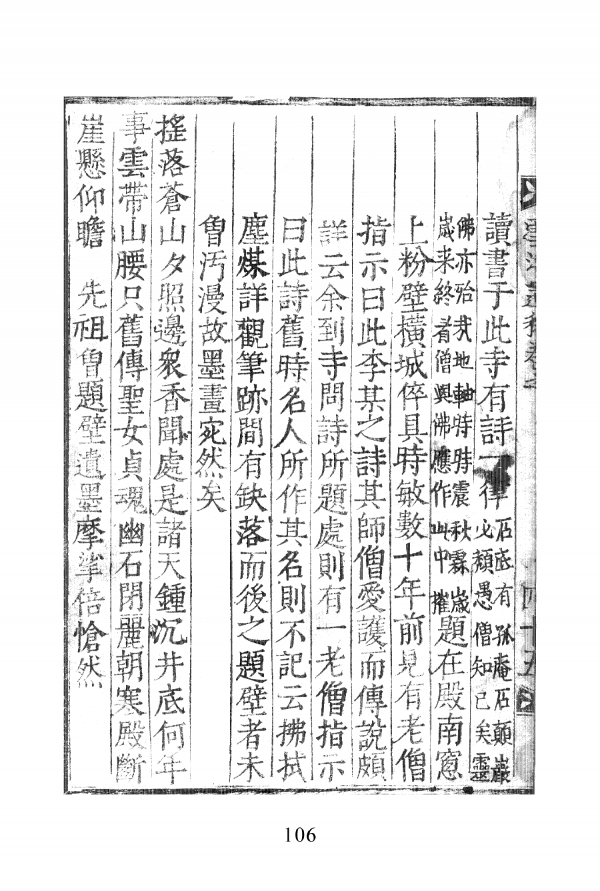 讀書于此寺有詩一律
石底有孤庵石顛巖
必頹愚僧知已矣靈
佛亦殆哉地軸時時震秋霖歲
歲來終看僧與佛應作山中摧
題在殿南窓
上粉壁橫城倅具時敏數十年前見有老僧
指示曰此李某之詩其師僧愛護而傳說頗
詳云余到寺問詩所題處則有一老僧指示
曰此詩舊時名人所作其名則不記云拂拭
塵煤詳觀筆跡間有缺落而後之題壁者未
曾汚漫故墨畫宛然矣
搖落蒼山夕照邊衆香聞處是諸天鍾沉井底何年
事雲帶山腰只舊傳聖女貞魂幽石閉麗朝寒殿斷
崖懸仰瞻 先祖曾題壁遺墨摩挲倍愴然
106